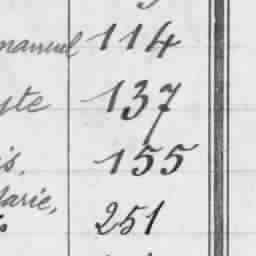 manuel 114
yte 137
is. 155
Marie,
251